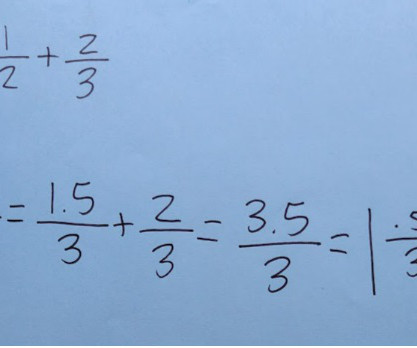 1/2 + 2/3
= 1.5/3 + 2/3 = 3.5/3 = 1 .5/3